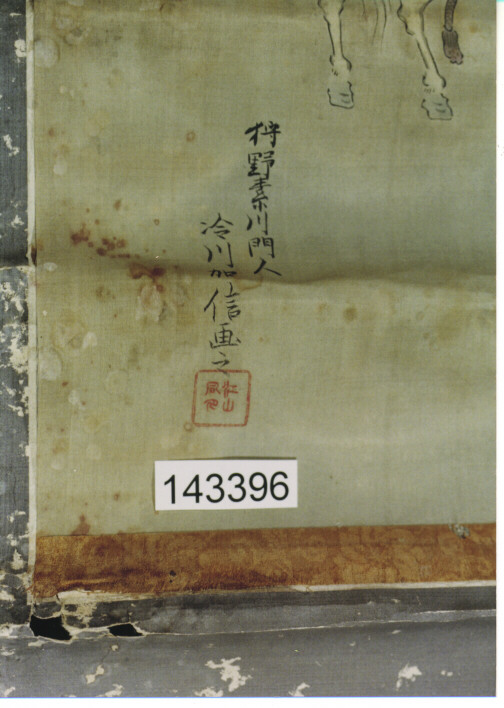 狩野素川門人
冷川信画之
江山
143396